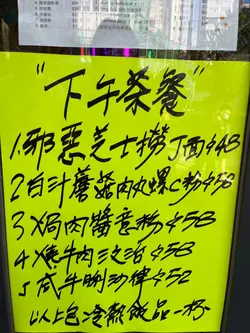 "下午茶餐"
1.邪惡芝士撈丁面$48
2白汁蘑菇肉丸螺C粉$58
3X焗肉醬意粉$58
4X燒牛肉三文治$58
5咸牛脷沙律$52
以上包冷熱飲品一杯